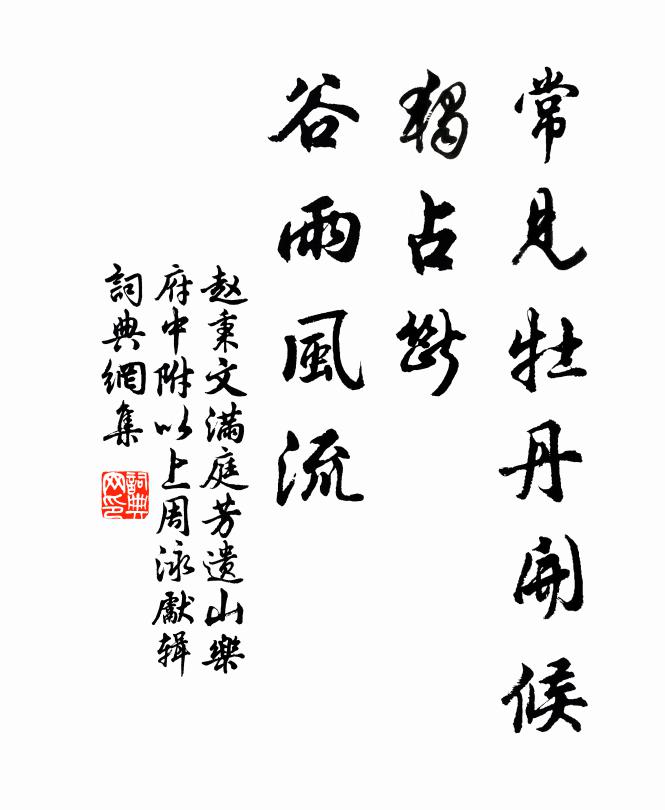 常見牡丹開候
獨占斷
谷雨風流
赵秉文滿庭芳遗山樂
府中附以上周泳獻辑
詞典網集
詞典
网印